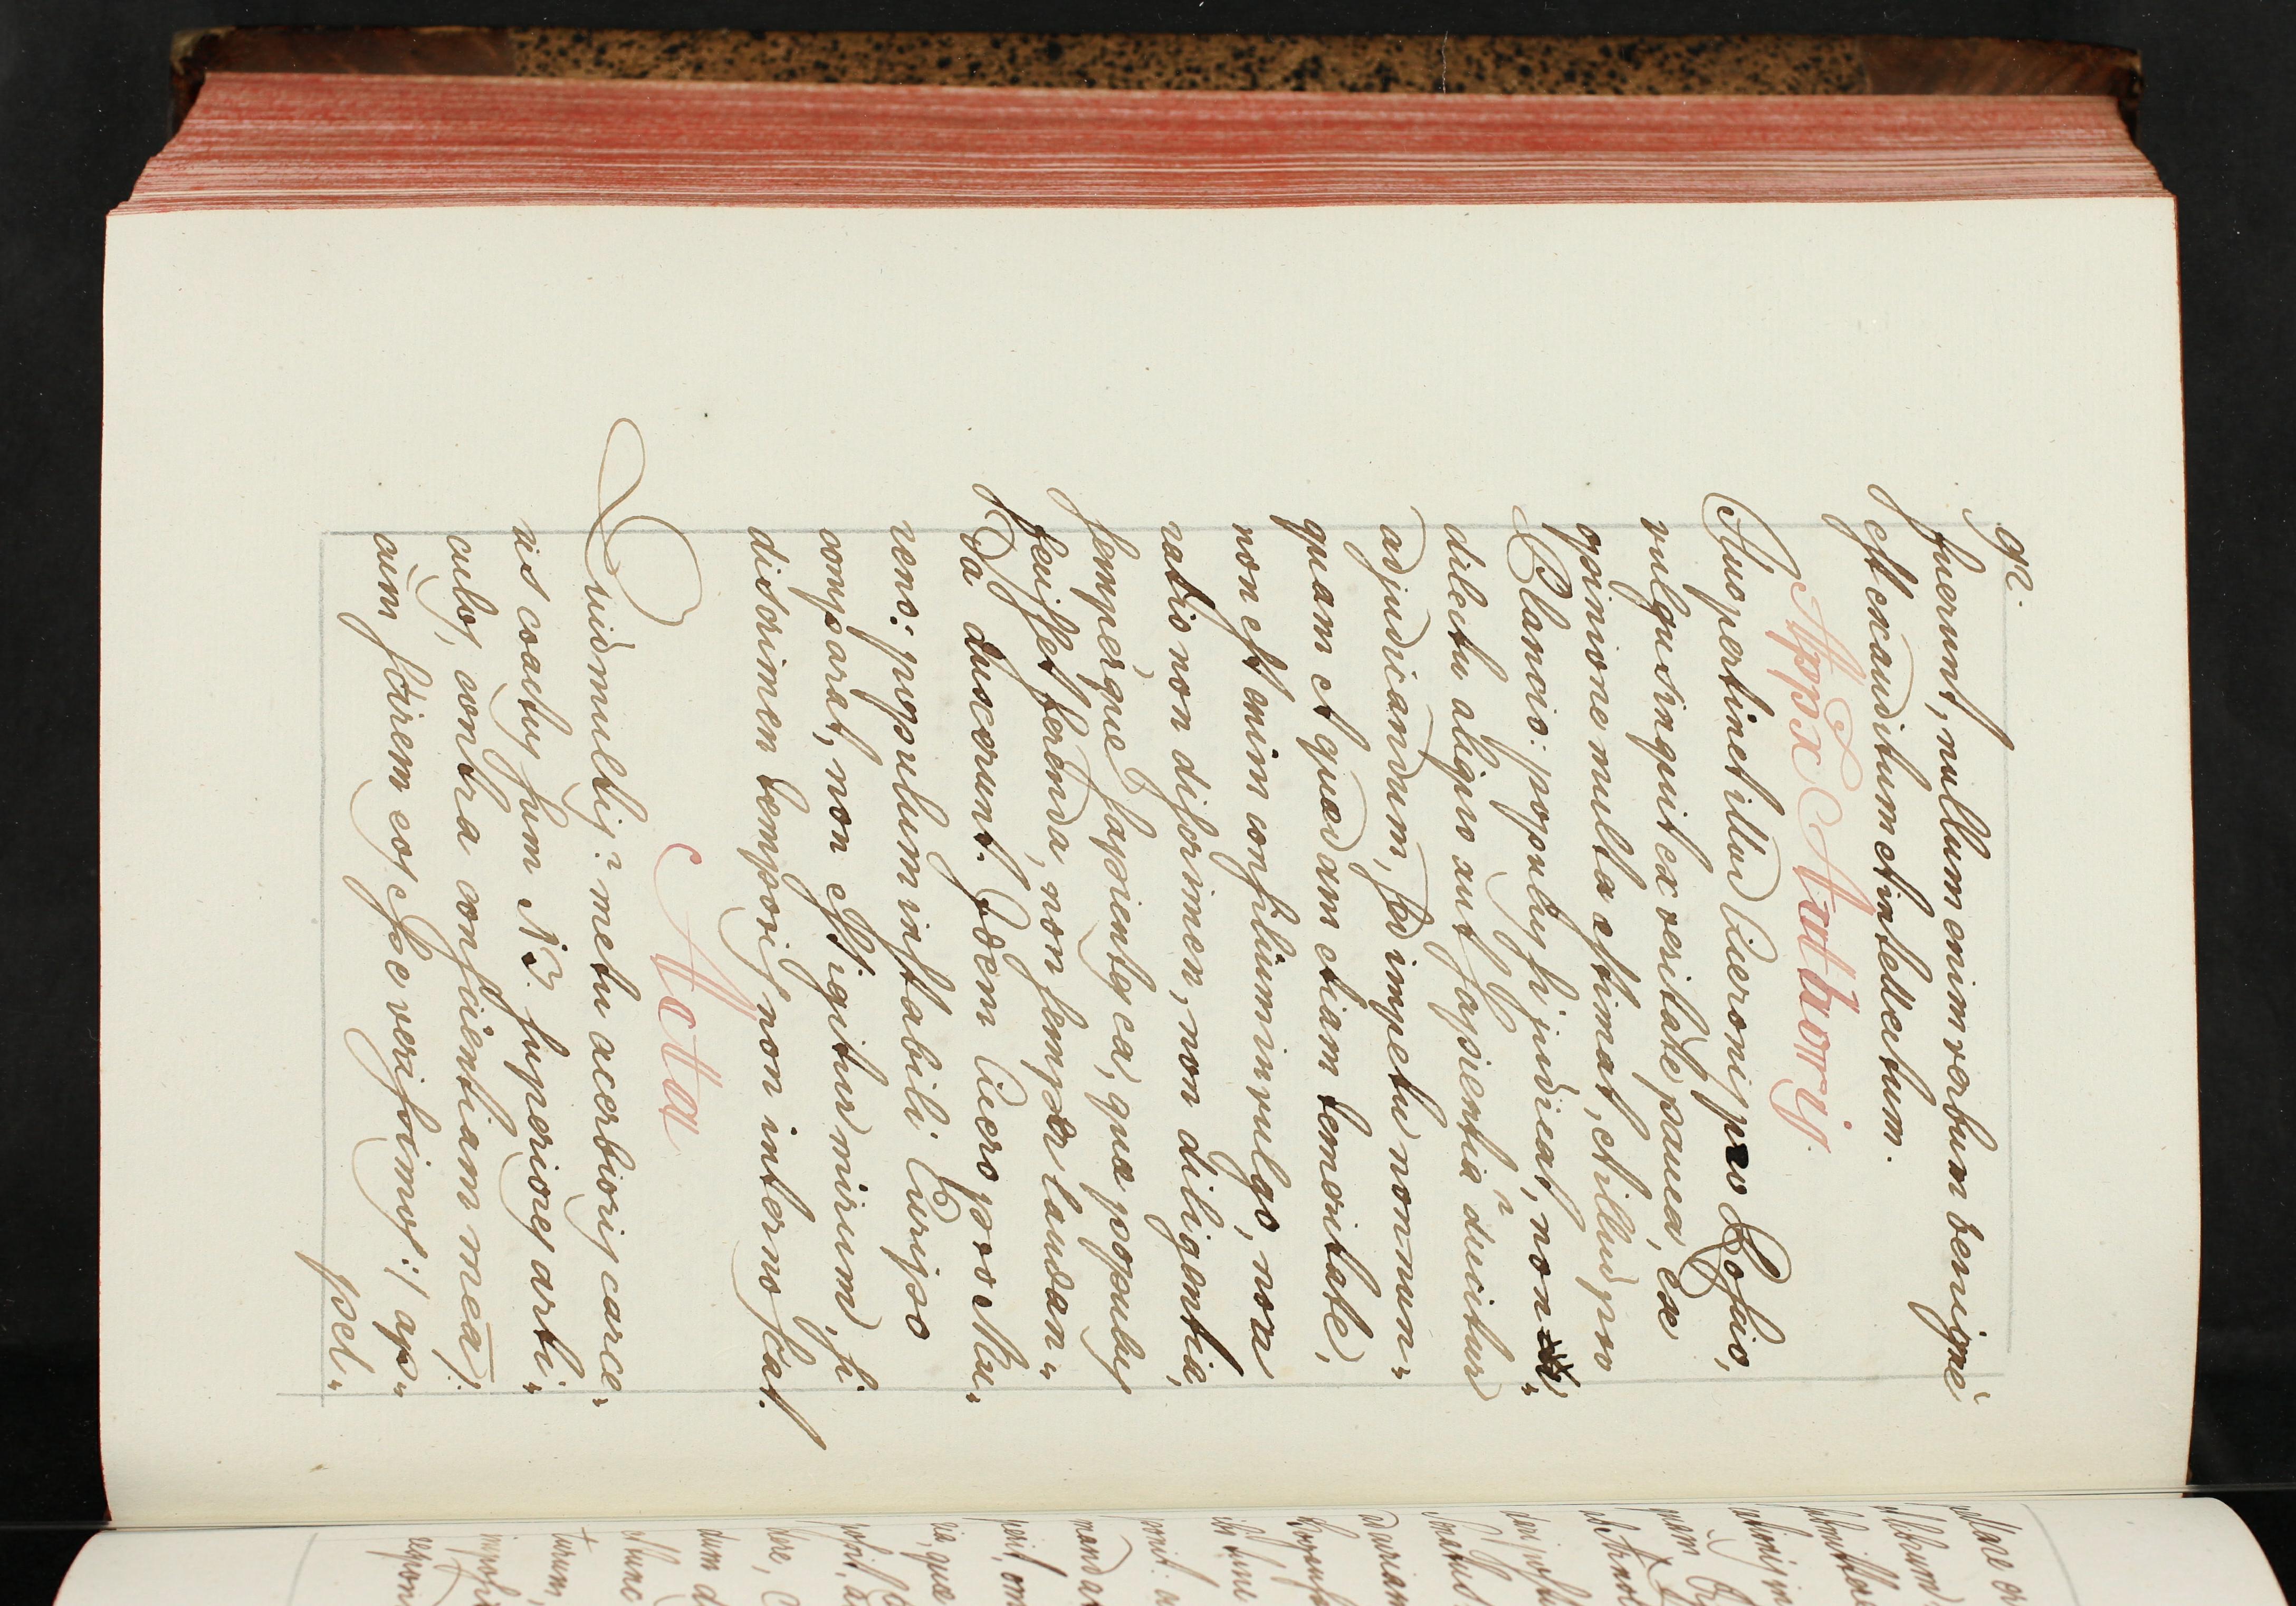 92.
fuerunt, nullum enim verbum benignè
est exauditum et intellectum.
Appx Authoris.
Huc pertinet illud Ciceronis pro Rossio,
vulgus inquit ex veritate pauca, ex
opinione multa estimat, et illud pro
Plancio: populus si judicat, non
dilectu aliquo aut sapientiâ ducitur
adjudicandum, sed impetu nonnun„
quam et quadam etiam temeritate,
non est enim consilium in vulgo, non
ratio non discrimen, non diligentia,
semperque sapientes ea, quæ populus
fecisset ferenda, non semper laudan„
da duxerunt. Idem Cicero pro Mu„
rena: populum instabili Euripo
comparat, non est igitur mirum, si
discrimen temporis non interno scat.
Acta
Quid multis? metu acerbioris carce„
ris coactus sum NB. superiores arti„
culos, contra conscientiam meã /:
cùm scirem eos esse verissimos :/ ap„
pel„